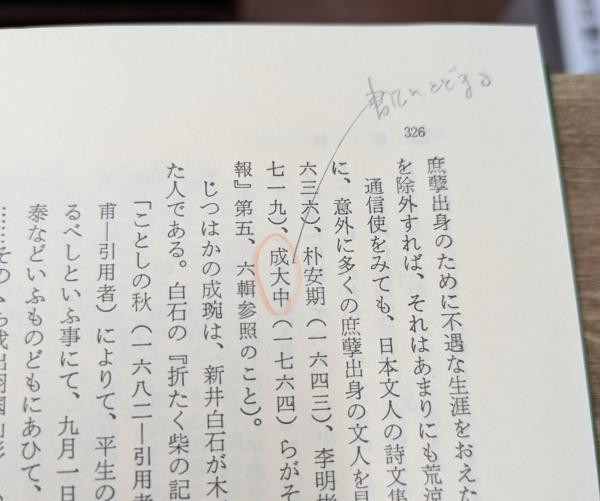 とどまる
326
庶孽出身のために不遇な生涯をおえた
を除外すれば、それはあまりにも荒涼
通信使をみても、日本文人の詩文集
に、意外に多くの庶孽出身の文人を見
六三六）、朴安期（一六四三）、李明彬
七一九）、成大中（一七六四）らがそ
報』第五、六輯参照のこと）。
じつはかの成琬は、新井白石が木
た人である。白石の『折たく柴の記
「ことしの秋（一六八二―引用者
甫―引用者）によりて、平生の
るべしといふ事にて、九月一日
泰などいふものどもにあひて、
……その